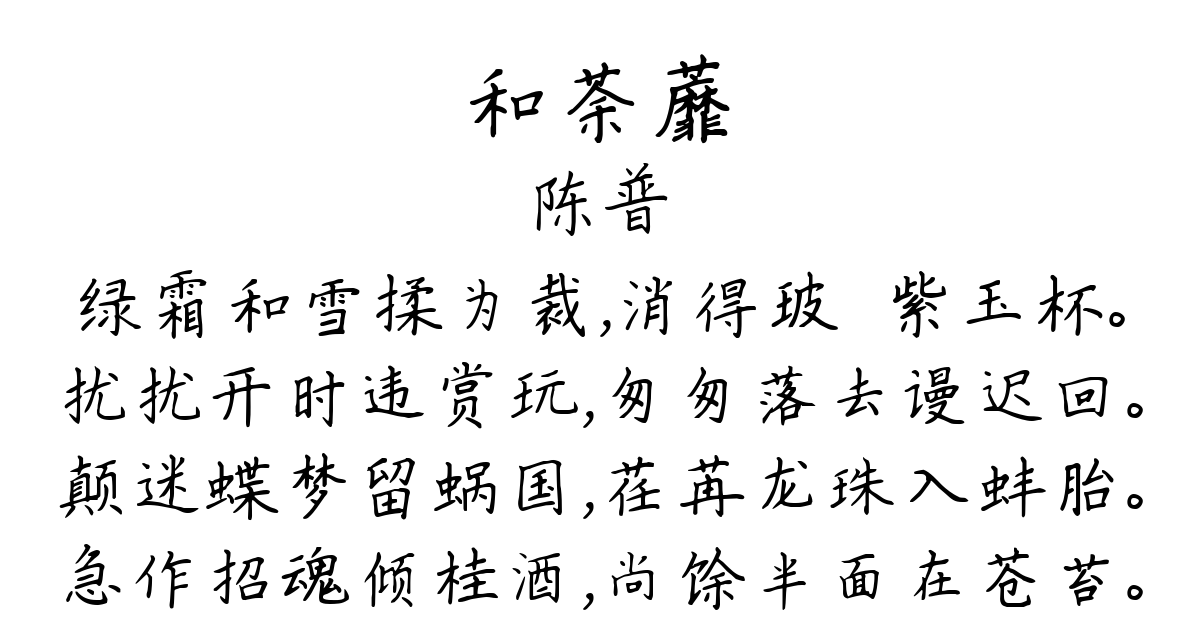 和荼蘼
陈普
绿霜和雪揉为裁,消得玻 紫玉杯。
扰扰开时违赏玩,匆匆落去谩迟回。
颠迷蝶梦留蜗国,荏苒龙珠入蚌胎。
急作招魂倾桂酒,尚馀半面在苍苔。